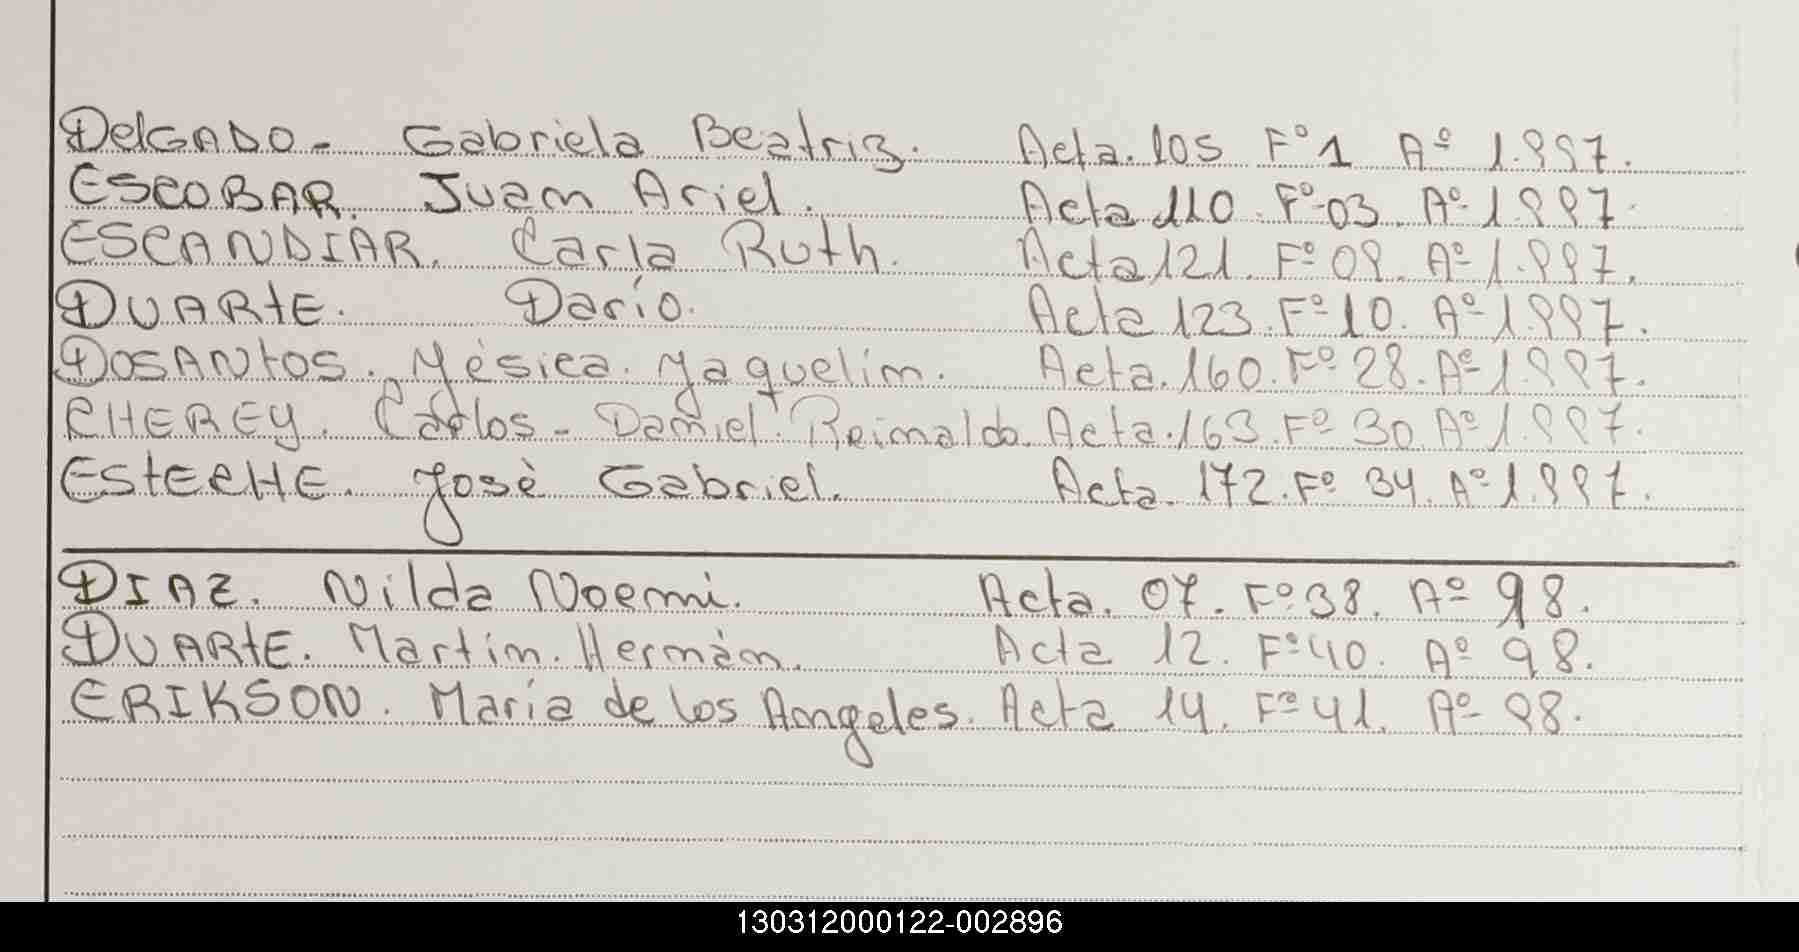 DelGADO - Gabriela Beatriz. Acta. 105 Fº 1 Aº 1.997.
ESCOBAR. Juan Ariel. Acta 110. Fº 03. Aº 1.997.
ESCANDIAR. Carla Ruth. Acta 121. Fº 09. Aº 1.997.
DUARtE. Darío. Acta 123. Fº 10. Aº 1.997.
DOSANtOS. Yésica. Yaquelin. Acta. 160. Fº 28. Aº 1.997.
CHEREY. Carlos - Daniel Reinaldo. Acta. 163. Fº 30. Aº 1.997.
EStECHE. Josè Gabriel. Acta. 172. Fº 34. Aº 1.997.
DIAZ. Nilda Noemi. Acta. 07. Fº 38. Aº 98.
DUARtE. Martín. Hernàn. Acta 12. Fº 40. Aº 98.
ERIKSON. María de los Angeles. Acta 14. Fº 41. Aº 98.
130312000122-002896